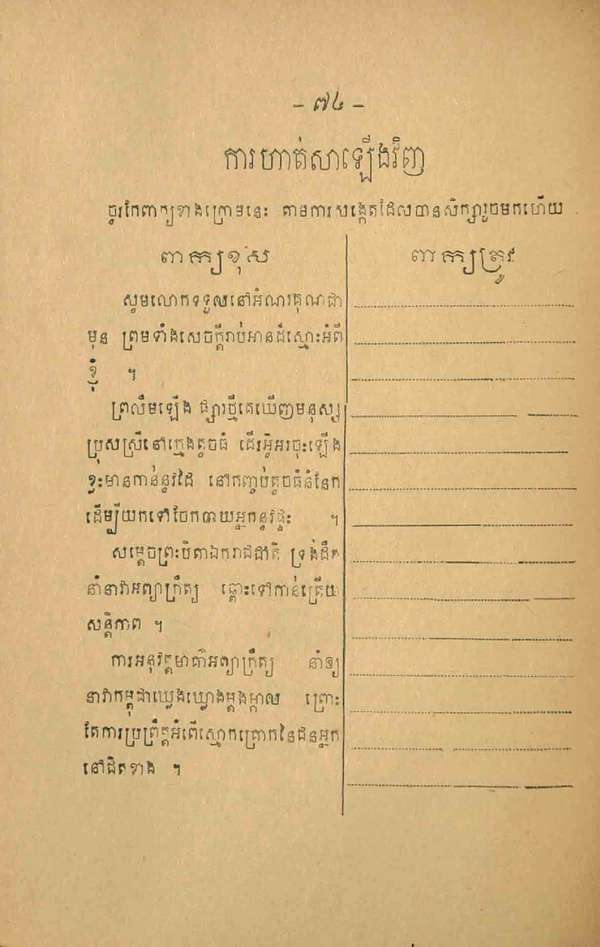 - ៧៤ -
ការហាត់សាឡើងវិញ
ចូរកែពាក្យខាងក្រោមនេះ តាមការសង្កេតដែលបានសិក្សារួចមកហើយ
ពាក្យខុស
ពាក្យត្រូវ
សូមលោកទទួលនៅអំណរគុណជា
មុន ព្រមទាំងសេចក្ដីរាប់អានដ៏ស្មោះអំពី
ខ្ញុំ ។
ព្រលឹមឡើង ផ្សារថ្មីគេឃើញមនុស្ស
ប្រុសស្រីនៅក្មេងតូចធំ ដើរអ៊ូអរចុះឡើង
ខ្លះមានកាន់នូវដៃ នៅកញ្ចប់តូចធំនំនែក
ដើម្បីយកទៅចែកបាយអ្នកនូវដ្ឋះ ។
សម្ដេចព្រះបិតាឯករាជជាតិ ទ្រង់ដឹក
នាំនាវាអព្យាក្រឹត្យ ឆ្ពោះទៅកាន់ត្រើយ
សន្តិភាព ។
ការអនុវត្តមាគ៌ាអព្យាក្រឹត្យ នាំឲ្យ
នាវាកម្ពុជាឃ្លេងឃ្លោងម្ដងម្កាល ព្រោះ
តែការប្រព្រឹត្តអំពើស្មោកគ្រោកនៃជនអ្នក
នៅជិតខាង ។